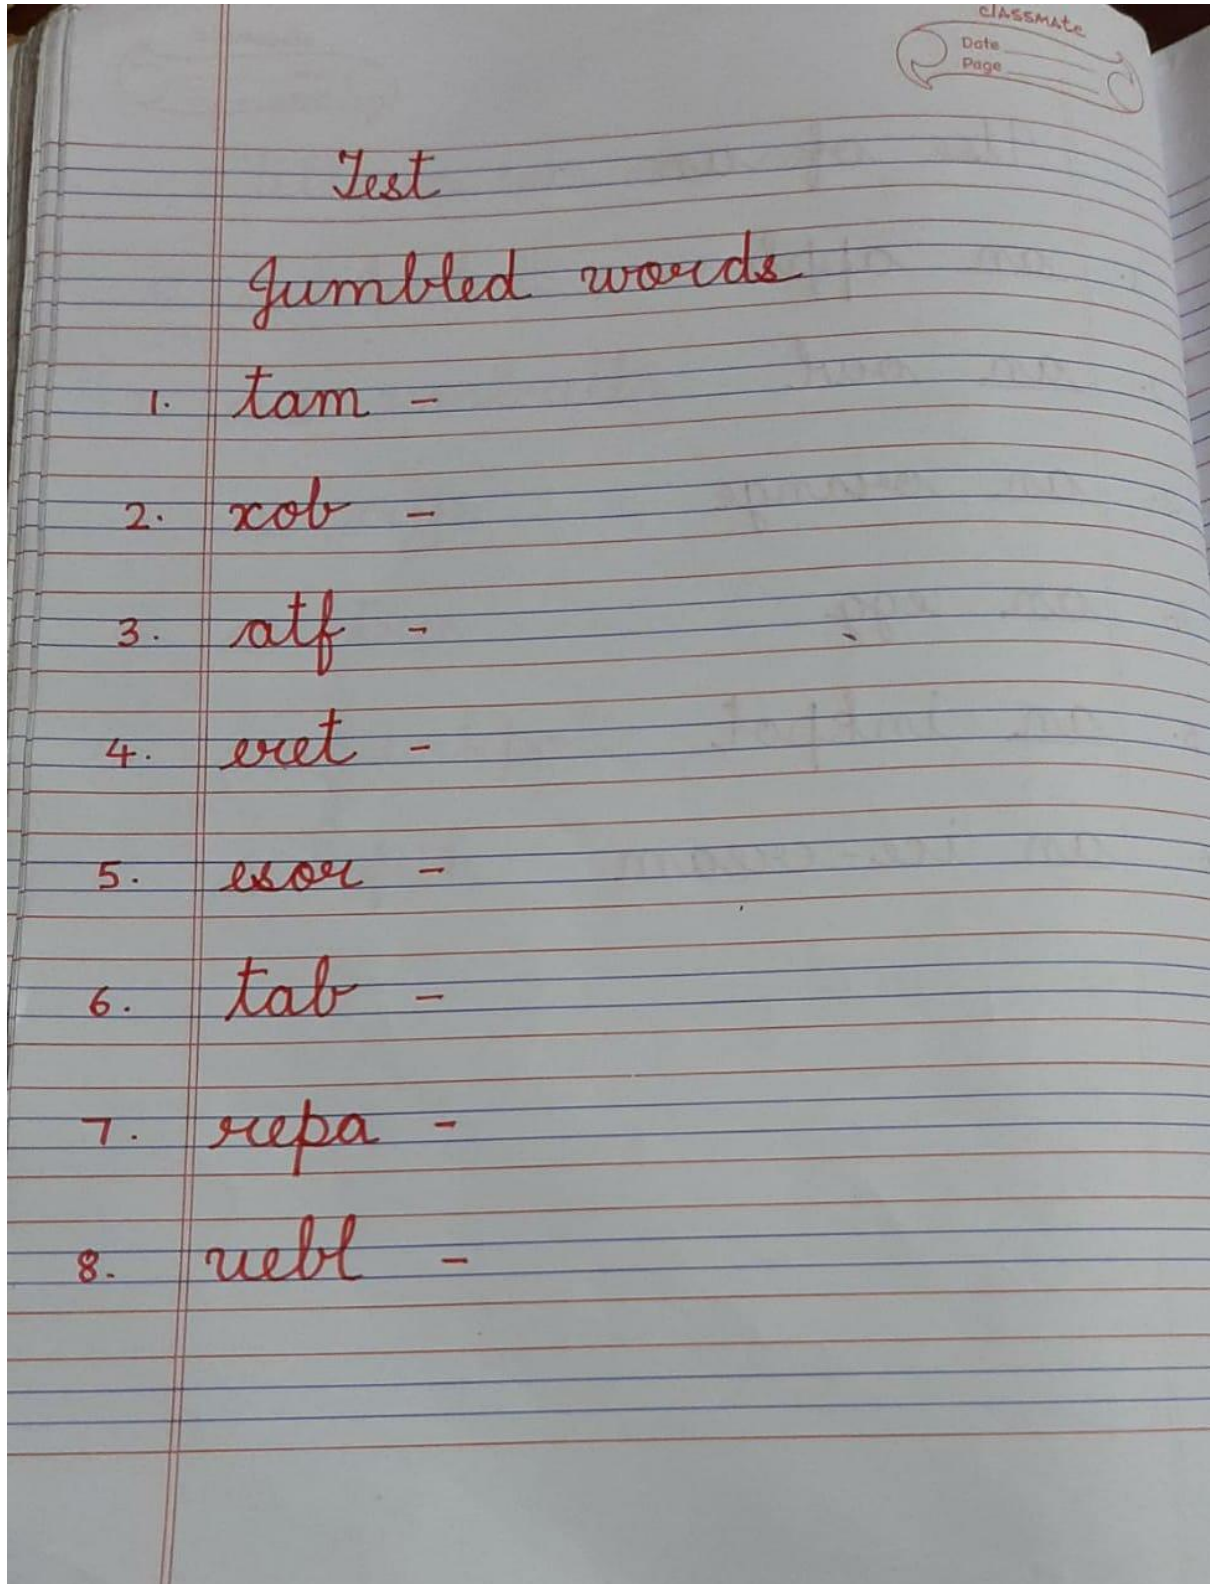 classmate
Date
Page
Test
Jumbled words
1. tam -
2. xob -
3. atf -
4. eret -
5. esor -
6. tab -
7. repa -
8. uebl -